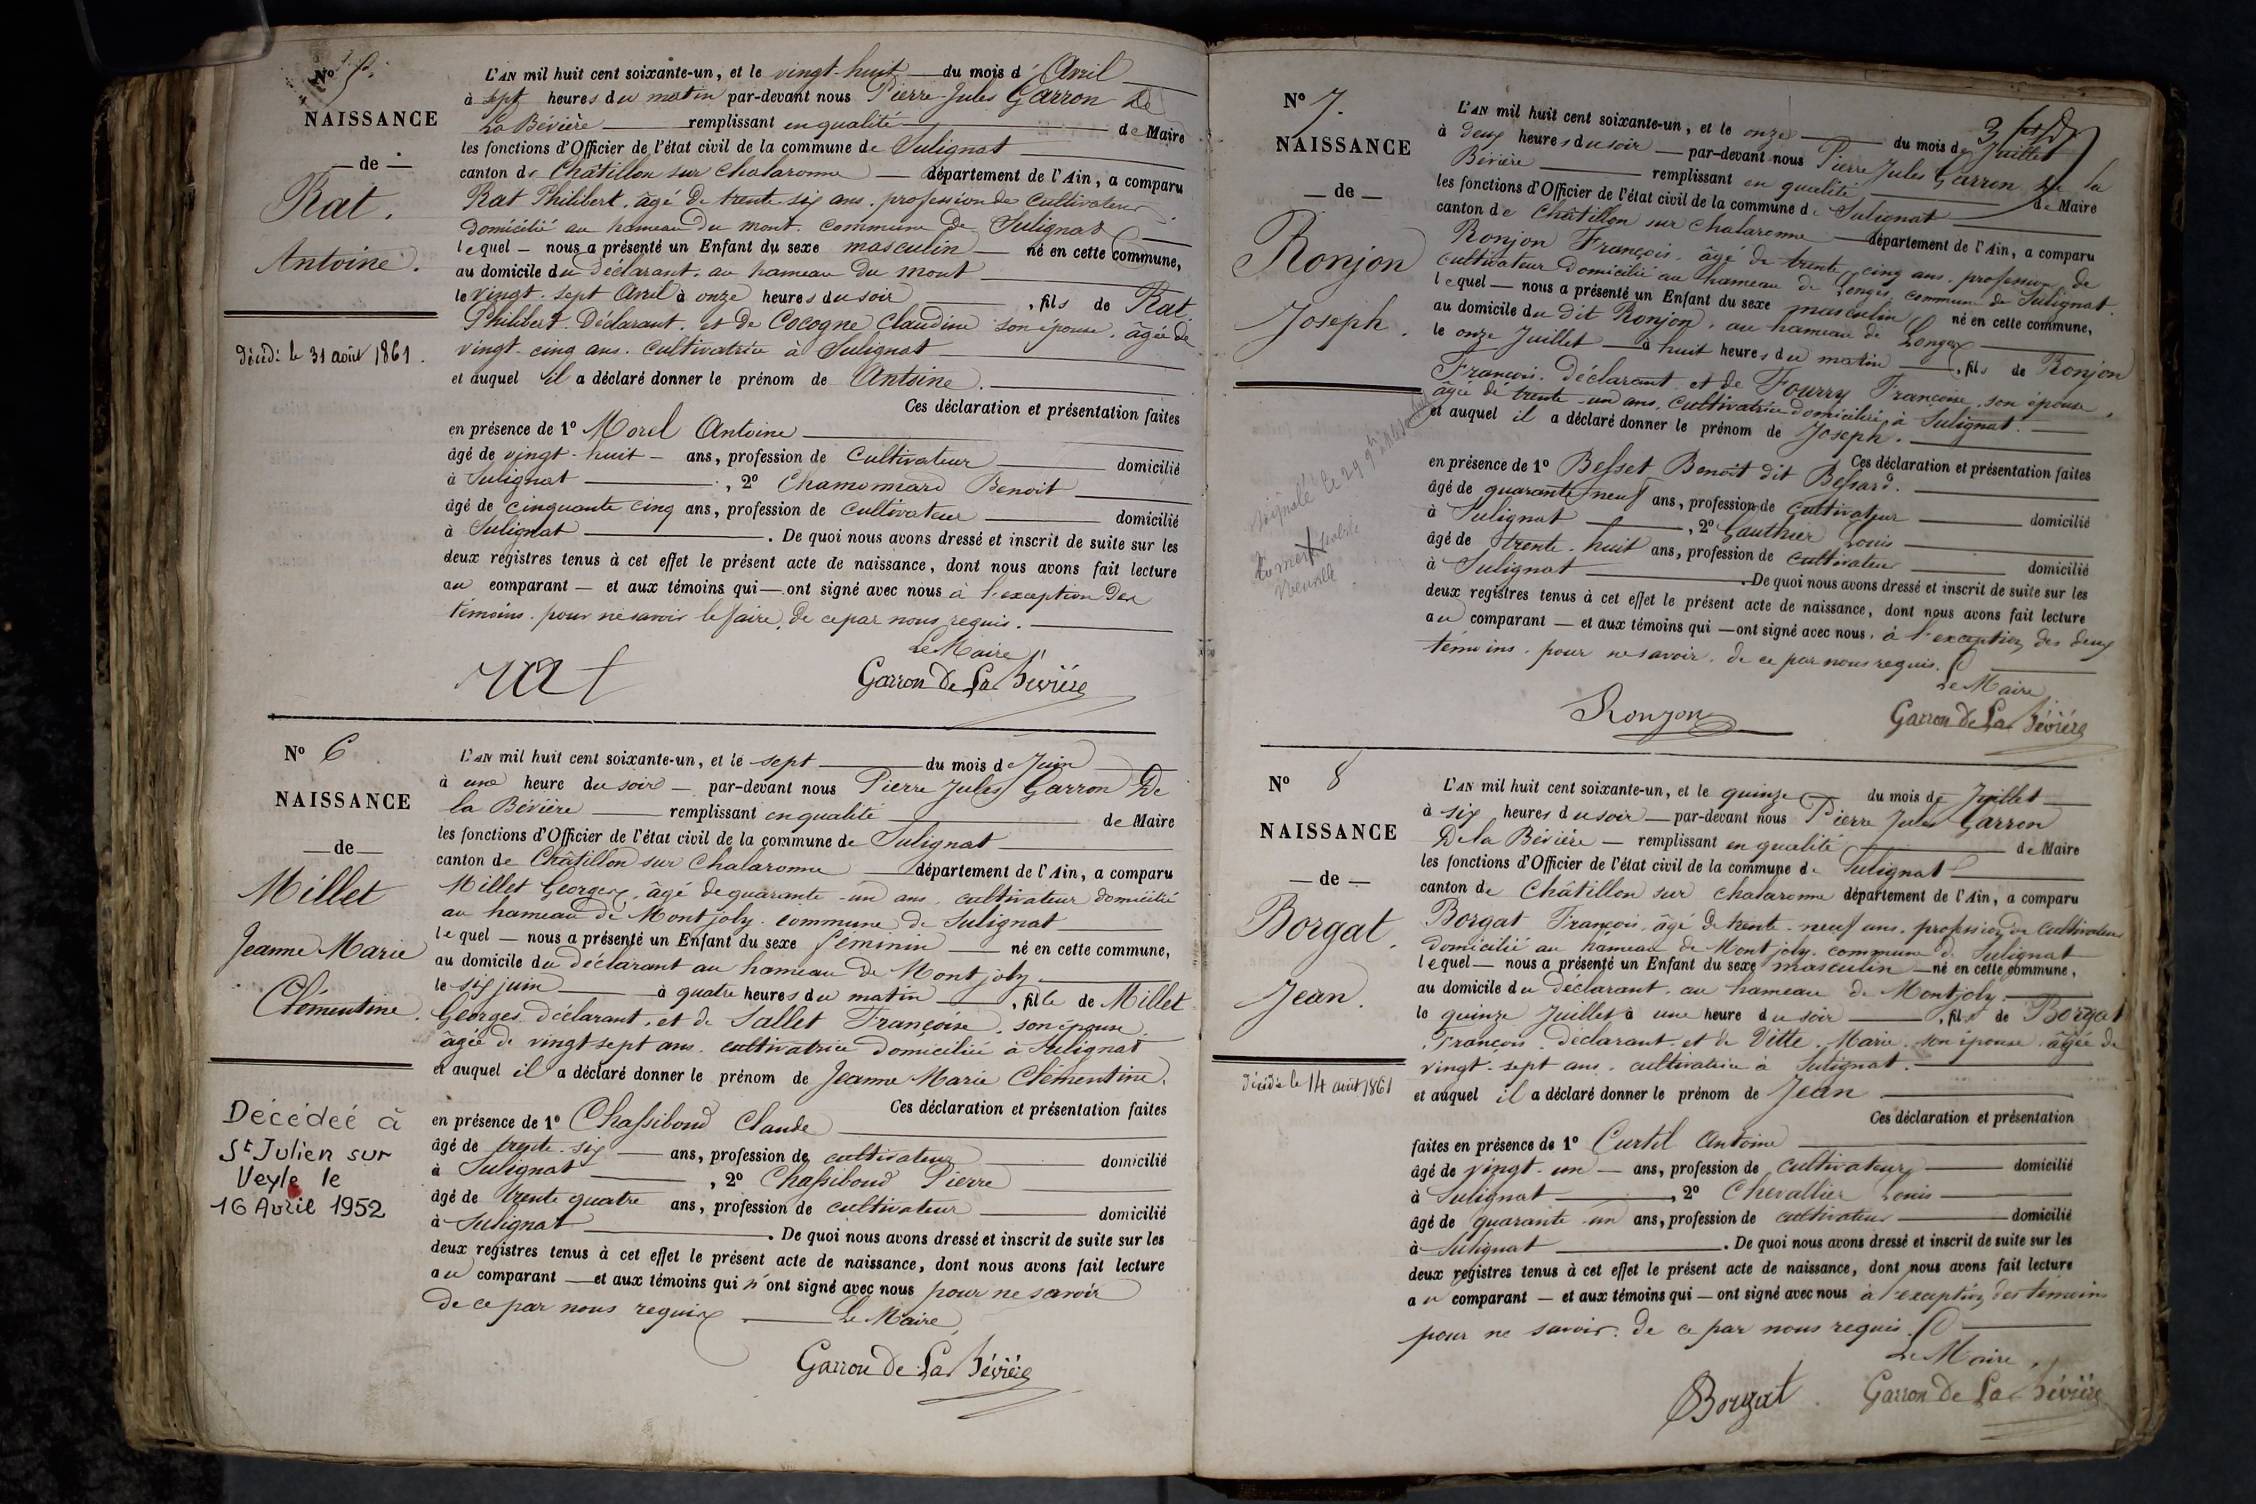 Nº 5.
NAISSANCE
— de —
Rat.
Antoine.
Décédé le 31 août 1861.
L'AN mil huit cent soixante-un, et le vingt-huit du mois d'Avril
à sept heures du matin par-devant nous Pierre Jules Garron De
La Bévière remplissant en qualité de Maire
les fonctions d'Officier de l'état civil de la commune de Sulignat
canton de Châtillon sur Chalaronne département de l'Ain, a comparu
Rat Philibert. âgé de trente six ans. profession de cultivateur
domicilié au hameau du mont. commune de Sulignat
lequel — nous a présenté un Enfant du sexe masculin — né en cette commune,
au domicile du déclarant. au hameau du mont
le vingt-sept Avril à onze heures du soir, fils de Rat
Philibert. Déclarant. et de Cocogne Claudine son épouse. âgée de
vingt-cinq ans. cultivatrice à Sulignat
et auquel il a déclaré donner le prénom de Antoine.
Ces déclaration et présentation faites
en présence de 1º Morel Antoine
âgé de vingt-huit — ans, profession de cultivateur domicilié
à Sulignat, 2º Chamonnard Benoit
âgé de cinquante cinq ans, profession de cultivateur domicilié
à Sulignat. De quoi nous avons dressé et inscrit de suite sur les
deux registres tenus à cet effet le présent acte de naissance, dont nous avons fait lecture
au comparant — et aux témoins qui — ont signé avec nous à l'exception des
témoins. pour ne savoir le faire, de ce par nous requis.
Le Maire
rat Garron De La Bévière
Nº 6
NAISSANCE
— de —
Millet
Jeanne Marie
Clémentine.
Décédée à
St Julien sur
Veyle le
16 Avril 1952
L'AN mil huit cent soixante-un, et le sept du mois de Juin
à une heure du soir — par-devant nous Pierre Jules Garron De
la Bévière remplissant en qualité de Maire
les fonctions d'Officier de l'état civil de la commune de Sulignat
canton de Châtillon sur Chalaronne département de l'Ain, a comparu
Millet Georges, âgé de quarante-un ans. cultivateur domicilié
au hameau de Montjoly. commune de Sulignat
lequel — nous a présenté un Enfant du sexe féminin né en cette commune,
au domicile du déclarant au hameau de Montjoly
le six juin à quatre heures du matin, fille de Millet
Georges déclarant, et de Sallet Françoise. son épouse.
âgée de vingt sept ans. cultivatrice domiciliée à Sulignat
et auquel il a déclaré donner le prénom de Jeanne Marie Clémentine.
Ces déclaration et présentation faites
en présence de 1º Chassiboud Claude
âgé de trente-six — ans, profession de cultivateur domicilié
à Sulignat, 2º Chassiboud Pierre
âgé de trente quatre ans, profession de cultivateur domicilié
à Sulignat. De quoi nous avons dressé et inscrit de suite sur les
deux registres tenus à cet effet le présent acte de naissance, dont nous avons fait lecture
au comparant — et aux témoins qui n'ont signé avec nous pour ne savoir
de ce par nous requis Le Maire
Garron De La Bévière
Nº 7.
NAISSANCE
— de —
Ronjon
Joseph.
L'AN mil huit cent soixante-un, et le onze du mois de Juillet
à deux heures du soir — par-devant nous Pierre Jules Garron De la
Bévière remplissant en qualité de Maire
les fonctions d'Officier de l'état civil de la commune de Sulignat
canton de Châtillon sur Chalaronne département de l'Ain, a comparu
Ronjon François. âgé de trente cinq ans. profession de
cultivateur domicilié au hameau de Longes commune de Sulignat.
lequel — nous a présenté un Enfant du sexe masculin né en cette commune,
au domicile du dit Ronjon, au hameau de Longes
le onze Juillet à huit heures du matin, fils de Ronjon
François. Déclarant et de Fourry Françoise. son épouse,
âgée de trente-un ans. cultivatrice domiciliée à Sulignat.
et auquel il a déclaré donner le prénom de Joseph.
Ces déclaration et présentation faites
en présence de 1º Besset Benoît dit Bessard.
âgé de quarante neuf ans, profession de cultivateur domicilié
à Sulignat, 2º Gauthier Louis
âgé de trente-huit ans, profession de cultivateur domicilié
à Sulignat. De quoi nous avons dressé et inscrit de suite sur les
deux registres tenus à cet effet le présent acte de naissance, dont nous avons fait lecture
au comparant — et aux témoins qui — ont signé avec nous. à l'exception des deux
témoins. pour ne savoir. de ce par nous requis.
Le Maire
Ronjon Garron De La Bévière
Nº 8
NAISSANCE
— de —
Borgat.
Jean.
Décédé le 14 août 1861
L'AN mil huit cent soixante-un, et le quinze du mois de Juillet
à six heures du soir — par-devant nous Pierre Jules Garron
De la Bévière — remplissant en qualité de Maire
les fonctions d'Officier de l'état civil de la commune de Sulignat
canton de Châtillon sur Chalaronne département de l'Ain, a comparu
Borgat François. âgé de trente-neuf ans. profession de cultivateur
domicilié au hameau de Montjoly. commune de Sulignat
lequel — nous a présenté un Enfant du sexe masculin — né en cette commune,
au domicile du déclarant. au hameau de Montjoly
le quinze Juillet à une heure du soir, fils de Borgat
François. déclarant. et de Vitte. Marie. son épouse. âgée de
vingt-sept ans. cultivatrice à Sulignat.
et auquel il a déclaré donner le prénom de Jean
Ces déclaration et présentation
faites en présence de 1º Curtil Antoine
âgé de vingt-un — ans, profession de cultivateur domicilié
à Sulignat, 2º Chevallier Louis
âgé de quarante-un ans, profession de cultivateur domicilié
à Sulignat. De quoi nous avons dressé et inscrit de suite sur les
deux registres tenus à cet effet le présent acte de naissance, dont nous avons fait lecture
au comparant — et aux témoins qui — ont signé avec nous à l'exception des témoins
pour ne savoir. de ce par nous requis.
Le Maire,
Borgat Garron De La Bévière